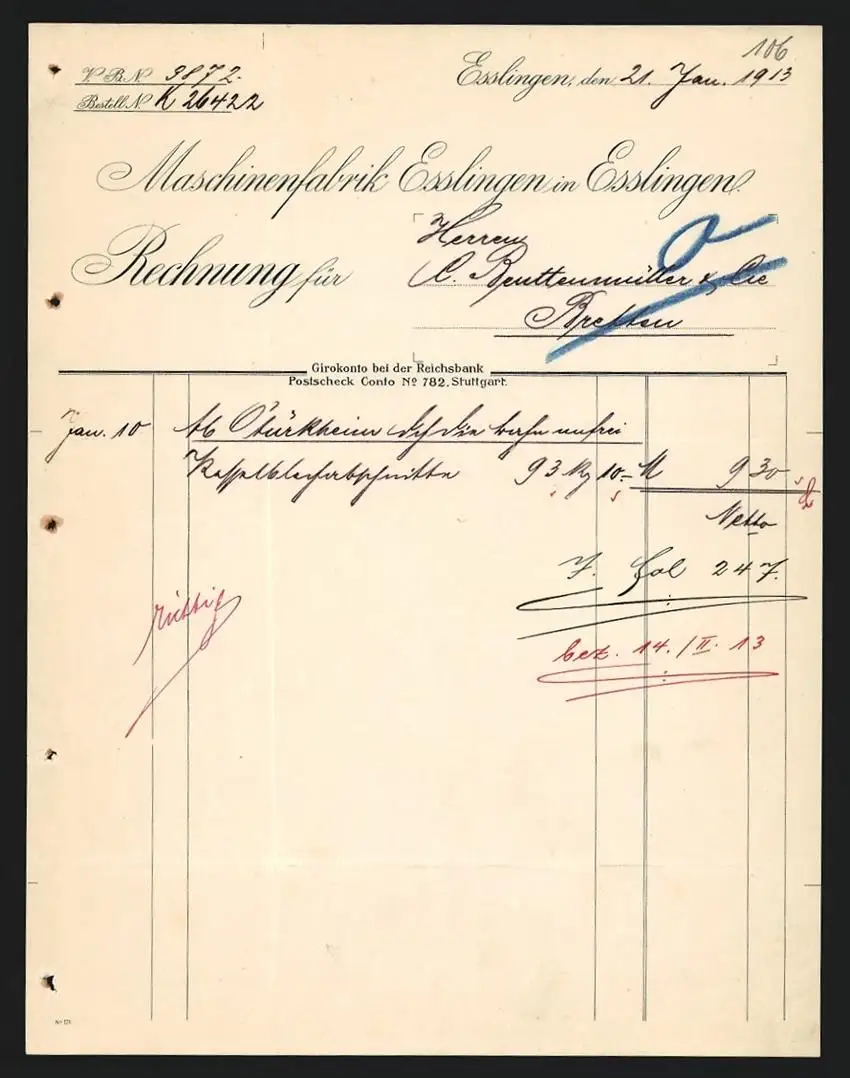 106
V. B. No 9872.
Esslingen, den 21. Jan. 1913
Bestell No K 26422
Maschinenfabrik Esslingen in Esslingen.
Rechnung für
Herren
C. Beuttenmüller & Cie
Bretten
Girokonto bei der Reichsbank
Postscheck Conto No 782, Stuttgart.
Jan. 10 Ab O'türkheim unfrei
Kesselblechabschnitte 93 Kg 10.- M 9 30
Netto
F. Fol 247.
richtig
bez. 14./II. 13
No 171